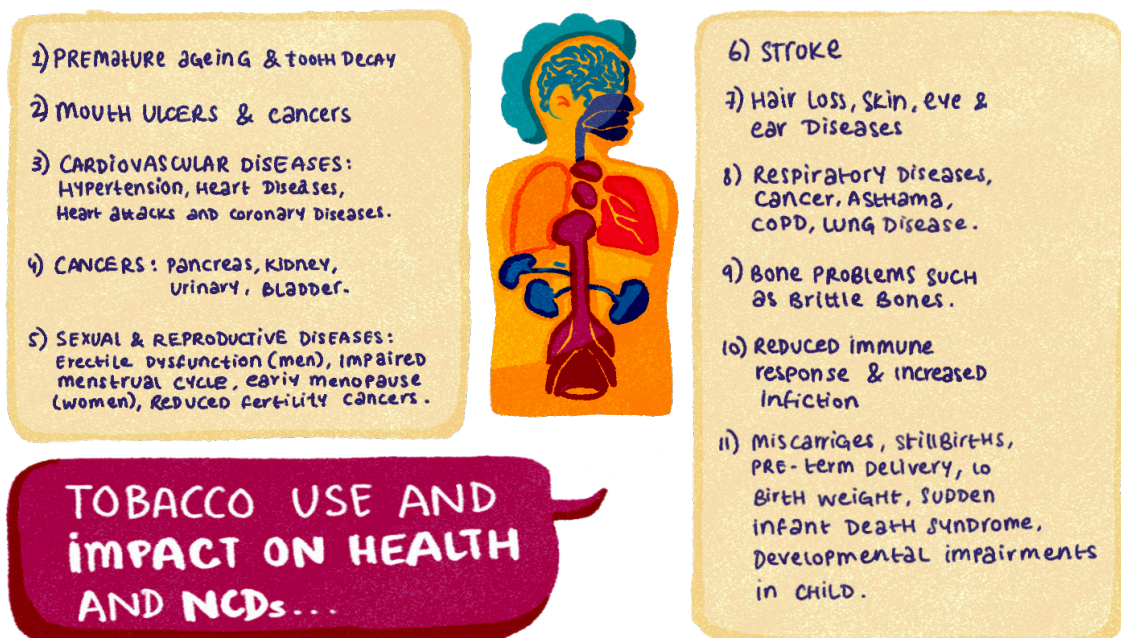 1) PREMATURE AGEING & TOOTH DECAY
2) MOUTH ULCERS & CANCERS
3) CARDIOVASCULAR DISEASES:
HYPERTENSION, HEART DISEASES,
HEART ATTACKS AND CORONARY DISEASES.
4) CANCERS: PANCREAS, KIDNEY,
URINARY, BLADDER.
5) SEXUAL & REPRODUCTIVE DISEASES:
ERECTILE DYSFUNCTION (MEN), IMPAIRED
MENSTRUAL CYCLE, EARLY MENOPAUSE
(WOMEN), REDUCED FERTILITY CANCERS.
TOBACCO USE AND
IMPACT ON HEALTH
AND NCDs...
6) STROKE
7) HAIR LOSS, SKIN, EYE &
EAR DISEASES
8) RESPIRATORY DISEASES,
CANCER, ASTHAMA,
COPD, LUNG DISEASE.
9) BONE PROBLEMS SUCH
AS BRITTLE BONES.
10) REDUCED IMMUNE
RESPONSE & INCREASED
INFICTION
11) MISCARRIGES, STILLBIRTHS,
PRE-TERM DELIVERY, LO
BIRTH WEIGHT, SUDDEN
INFANT DEATH SYNDROME,
DEVELOPMENTAL IMPAIRMENTS
IN CHILD.